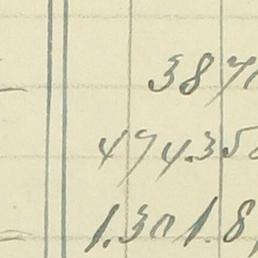 387
474.35
1.301.8